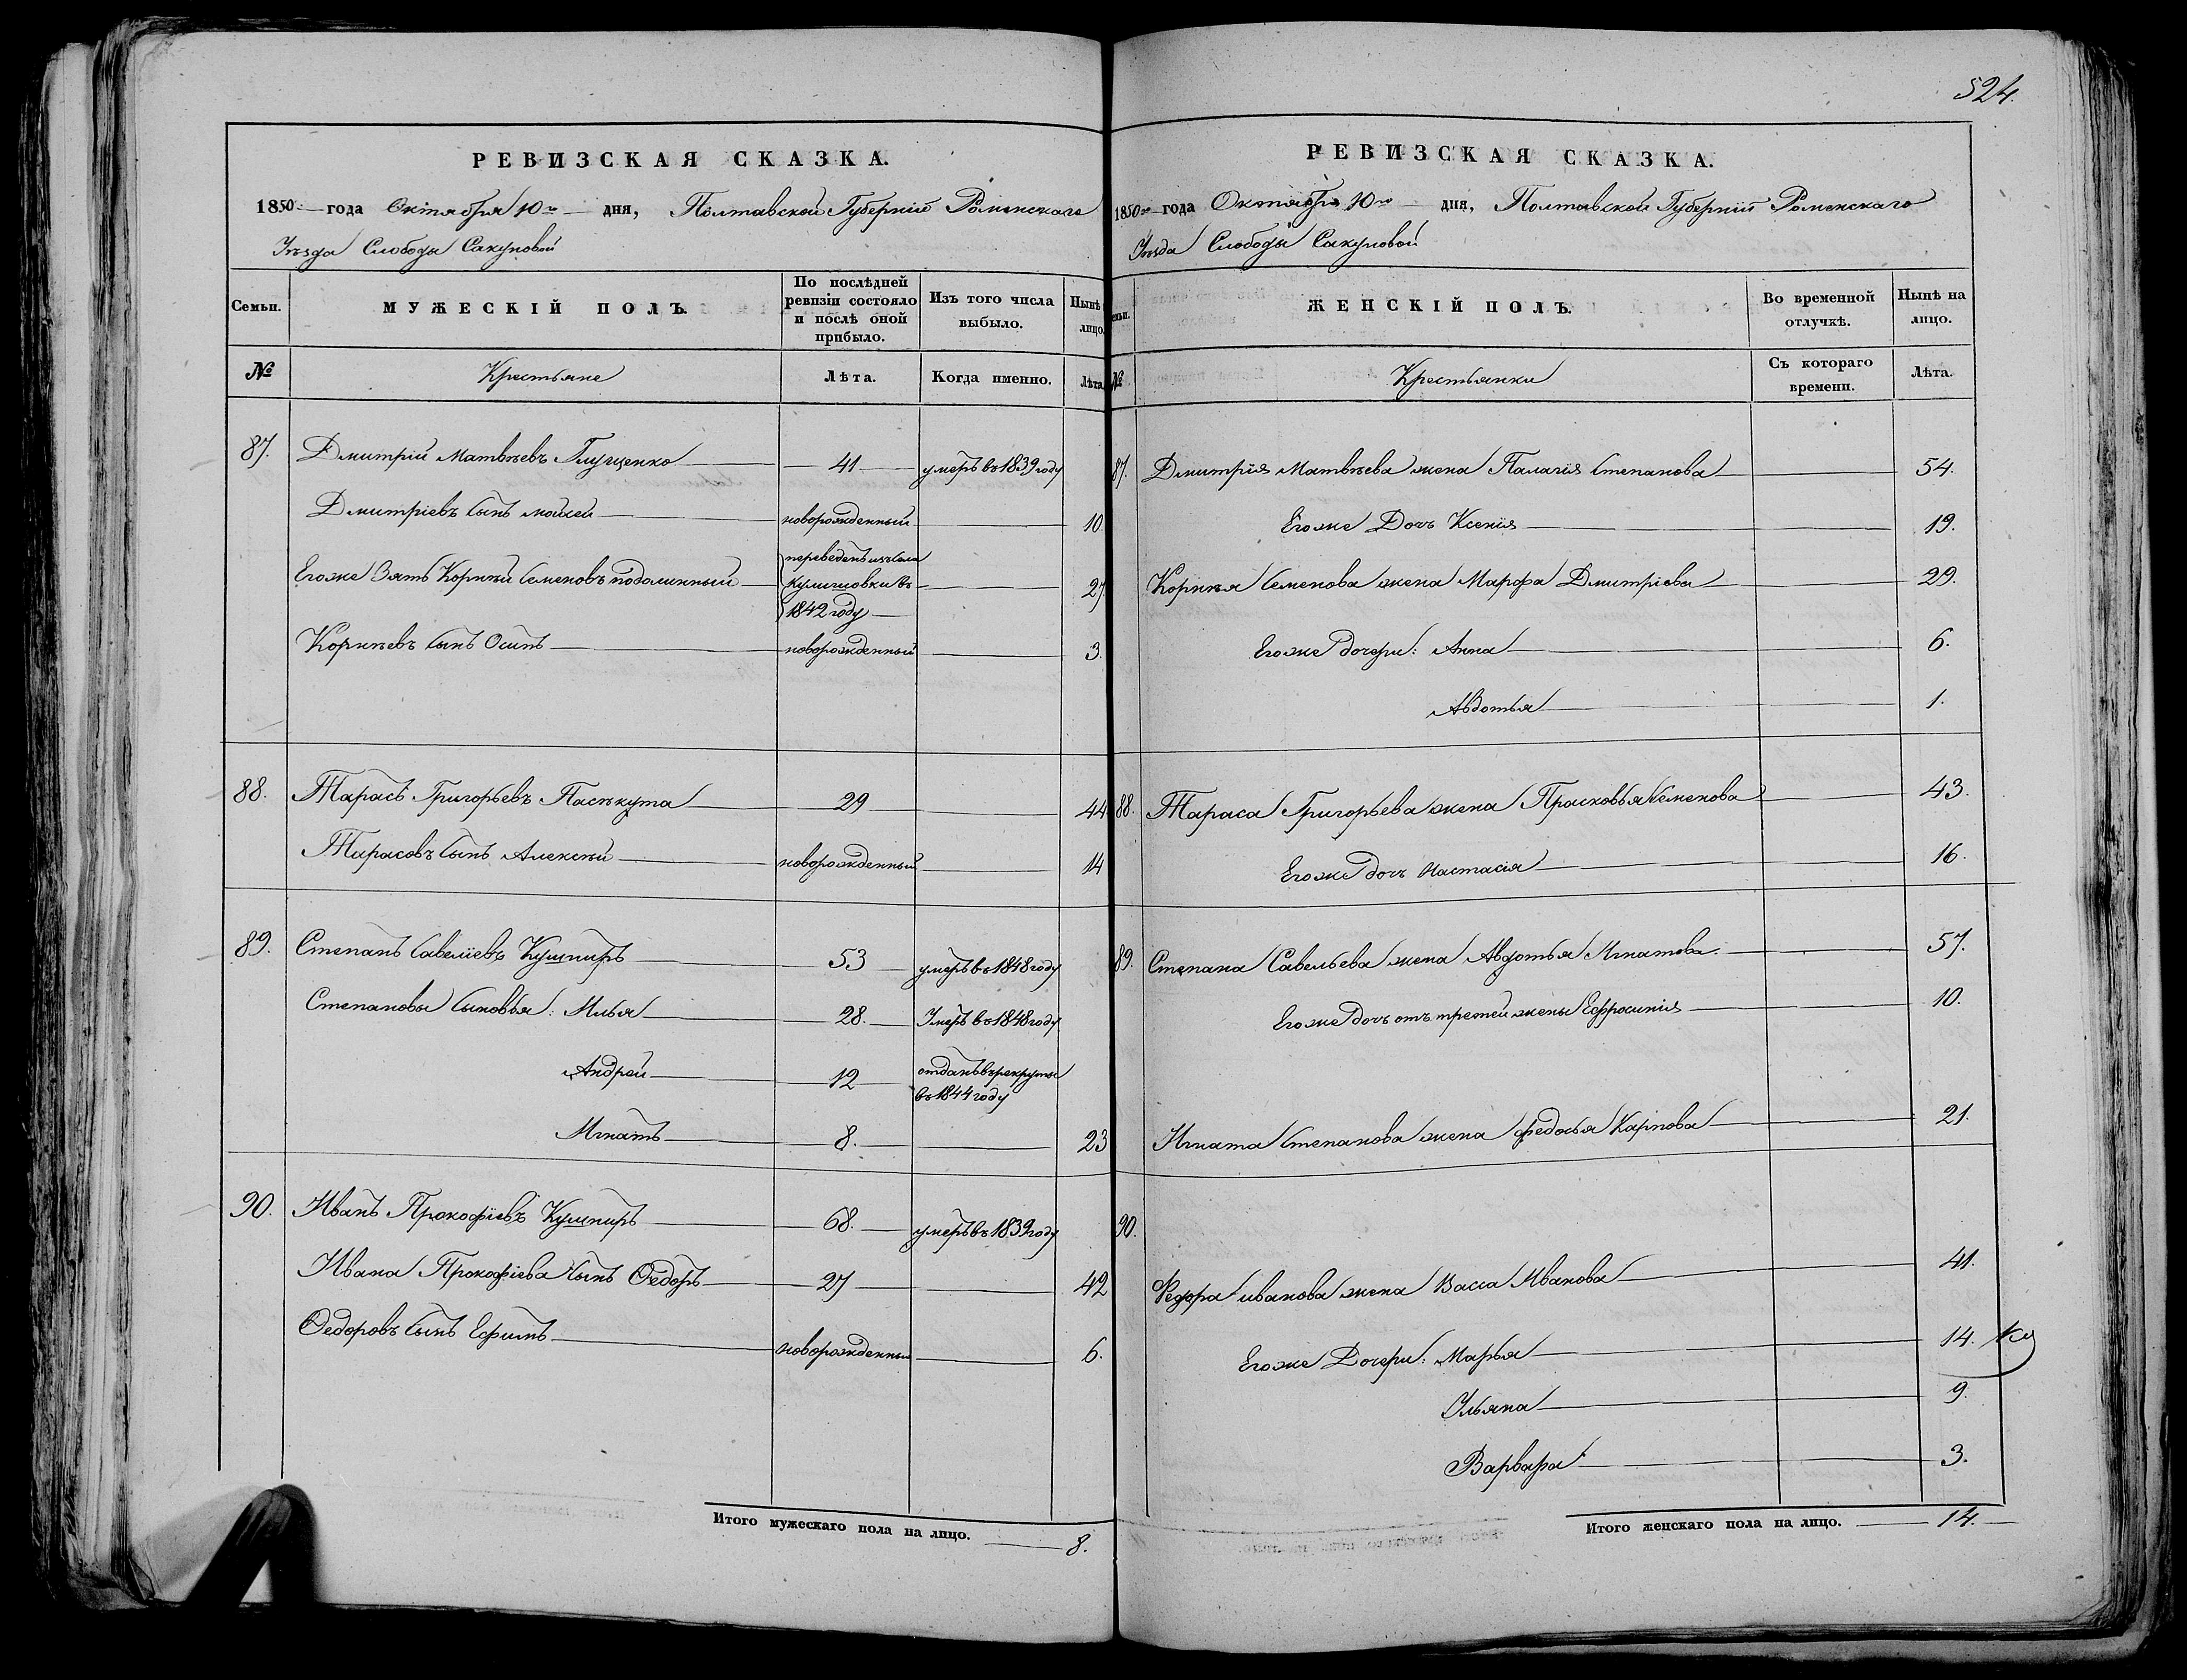 524.
РЕВИЗСКАЯ СКАЗКА.
1850 года Октября 10го дня, Полтавской Губерніи Роменскаго
Уѣзда Слободы Сакуновой
Семьи. МУЖЕСКІЙ ПОЛЪ. По послѣдней ревизіи состояло и послѣ оной прибыло. Изъ того числа выбыло. Нынѣ лицо.
№ Крестьяне Лѣта. Когда именно. Лѣта.
87. Дмитрій Матвѣевъ Глущенко 41 умеръ въ 1839 году
Дмитріевъ сынъ Мойсей новорожденный 10
Егоже Зять Корнѣй Семеновъ подолинный переведенъ изъ села
Кулишовки въ 27
1842 году
Корнѣевъ сынъ Осипъ новорожденный 3.
88. Тарасъ Григорьевъ Пасѣкута 29 44
Тарасовъ сынъ Алексѣй новорожденный 14
89. Степанъ Савеліевъ Кушниръ 53 умеръ въ 1848 году
Степановы сыновья: Илья 28. Умеръ въ 1848 году
Андрей 12 отданъ въ рекруты
въ 1844 году
Игнатъ 8. 23
90. Иванъ Прокофіевъ Кушниръ 68. умеръ въ 1839 году
Ивана Прокофіева сынъ Ѳедоръ 27 42
Ѳедоровъ сынъ Ефимъ новорожденный 6.
Итого мужескаго пола на лицо. 8.
РЕВИЗСКАЯ СКАЗКА.
1850го года Октября 10го дня, Полтавской Губерніи Роменскаго
Уѣзда Слободы Сакуновой
ЖЕНСКІЙ ПОЛЪ. Во временной отлучкѣ. Нынѣ на лицо.
№ Крестьянки Съ котораго времени. Лѣта.
87. Дмитрія Матвѣева жена Палагія Степанова 54.
Егоже Дочь Ксенія 19.
Корнѣя Семенова жена Марфа Дмитріева 29.
Егоже дочери: Анна 6.
Авдотья 1.
88. Тараса Григорьева жена Прасковья Семенова 43.
Егоже дочь Настасія 16.
89. Степана Савельева жена Авдотья Игнатова. 57.
Егоже дочь отъ третей жены Ефросинія 10.
Игната Степанова жена Федосья Карпова 21.
90.
Федора Иванова жена Васса Иванова 41.
Егоже Дочери: Марья 14.
Ульяна 9.
Варвара 3.
Итого женскаго пола на лицо. 14.